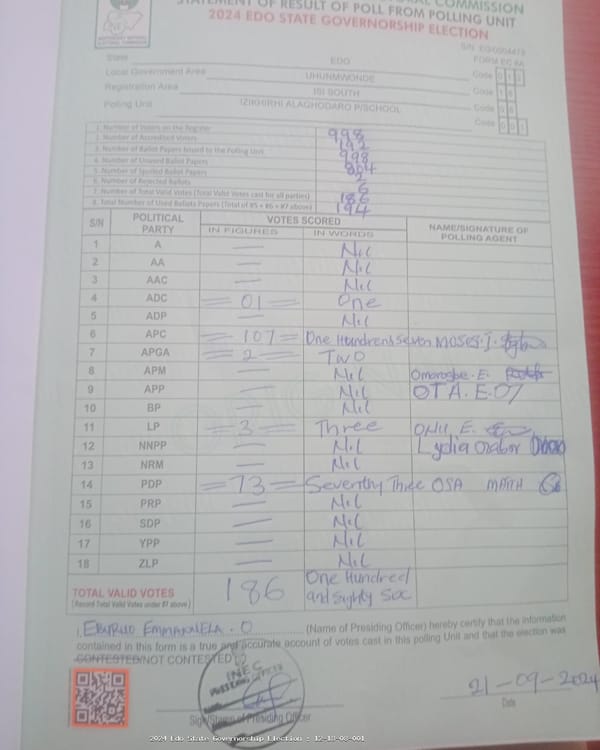 COMMISSION
STATEMENT OF RESULT OF POLL FROM POLLING UNIT
2024 EDO STATE GOVERNORSHIP ELECTION
FORM EC 8A
State EDO Code
Local Government Area UHUNMWONDE Code
Registration Area ISI SOUTH Code
Polling Unit IZIKHIRHI ALAGHODARO P/SCHOOL Code
1. Number of Voters on the Register 998
2. Number of Accredited Voters 192
3. Number of Ballot Papers Issued to the Polling Unit 998
4. Number of Unused Ballot Papers 804
5. Number of Spoiled Ballot Papers 2
6. Number of Rejected Ballots 6
7. Number of Total Valid Votes (Total Valid Votes cast for all parties) 186
8. Total Number of Used Ballots Papers (Total of #5 + #6 + #7 above) 194
S/N POLITICAL PARTY VOTES SCORED NAME/SIGNATURE OF POLLING AGENT
IN FIGURES IN WORDS
1 A — Nil
2 AA — Nil
3 AAC — Nil
4 ADC 01 One
5 ADP — Nil
6 APC 107 One Hundred Seven MOSES. J.
7 APGA 2 Two
8 APM — Nil Omorogbe. E.
9 APP — Nil OTA. E.
10 BP — Nil
11 LP 3 Three E.
12 NNPP — Nil Lydia
13 NRM — Nil
14 PDP 73 Seventhy Three OSA
15 PRP — Nil
16 SDP — Nil
17 YPP — Nil
18 ZLP — Nil
TOTAL VALID VOTES 186 One Hundred
(Record Total Valid Votes under #7 above) and Eighty Six
I, Emmanuela . O (Name of Presiding Officer) hereby certify that the information
contained in this form is a true and accurate account of votes cast in this polling Unit and that the election was
CONTESTED/NOT CONTESTED
INEC
21-09-2024
Sign/Stamp of Presiding Officer Date
2024 Edo State Governorship Election : 12-18-08-001